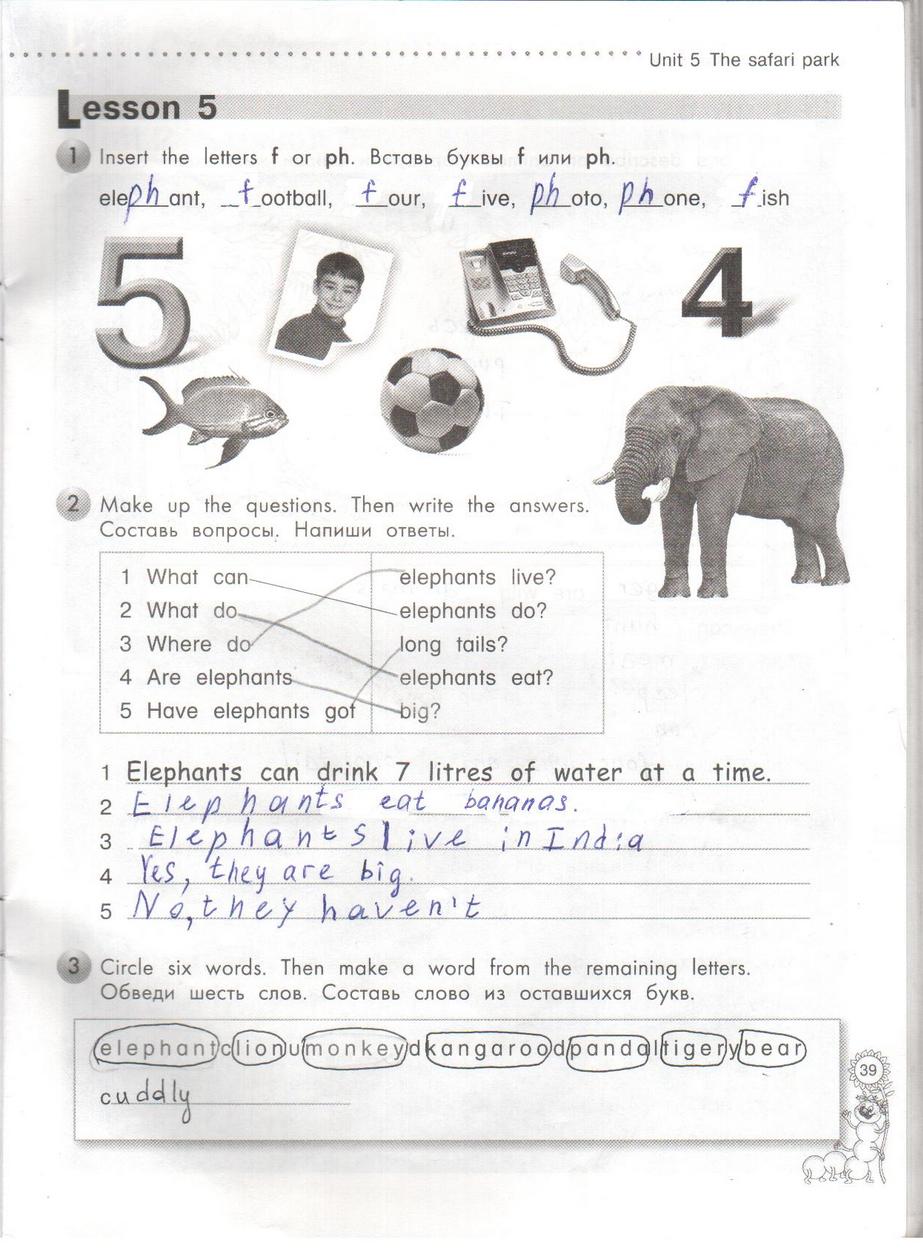 Unit 5 The safari park
Lesson 5
1 Insert the letters f or ph. Вставь буквы f или ph.
elephant, football, four, five, photo, phone, fish
5
4
2 Make up the questions. Then write the answers.
Составь вопросы. Напиши ответы.
1 What can elephants live?
2 What do elephants do?
3 Where do long tails?
4 Are elephants elephants eat?
5 Have elephants got big?
1 Elephants can drink 7 litres of water at a time.
2 Elephants eat bananas.
3 Elephants live in India
4 Yes, they are big.
5 No, they haven't
3 Circle six words. Then make a word from the remaining letters.
Обведи шесть слов. Составь слово из оставшихся букв.
elephantclionumonkeydkangaroodpandaltigerybear
cuddly
39